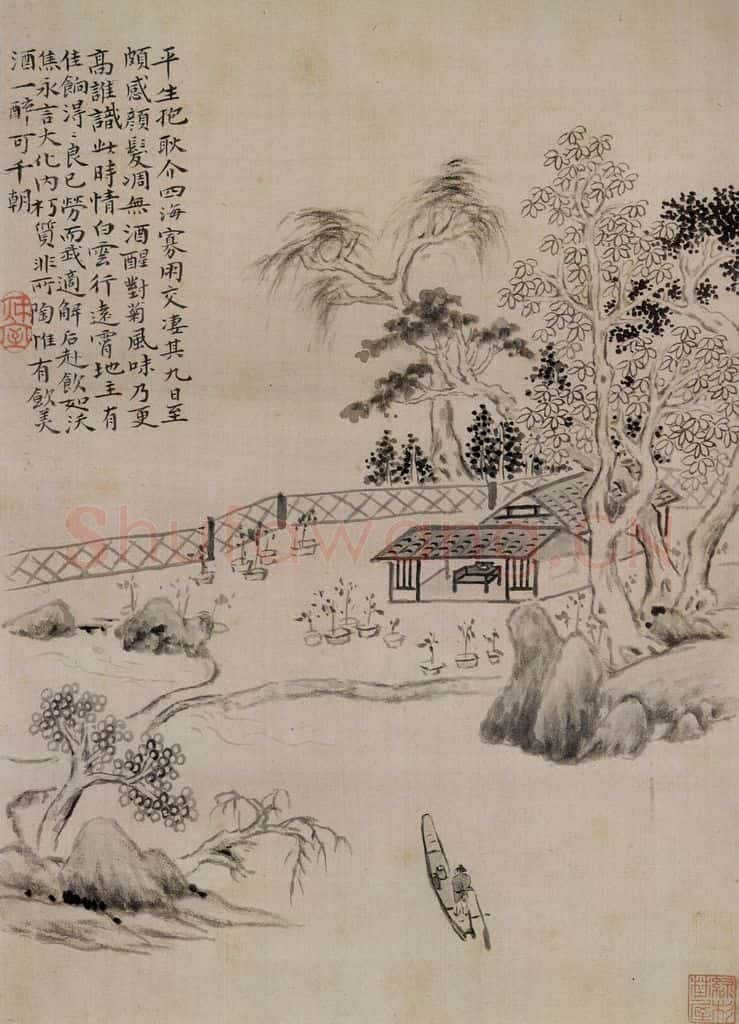 平生抱耿介四海寡朋交凄其九日至
頗感顏髮凋無酒醒對菊風味乃更
高誰識此時情白雲行遠霄地主有
佳餉淂〻良已勞而我適解后赴飲如沃
焦永言大化內朽質非所陶惟有飲美
酒一醉可千朝
Shufawang.CN